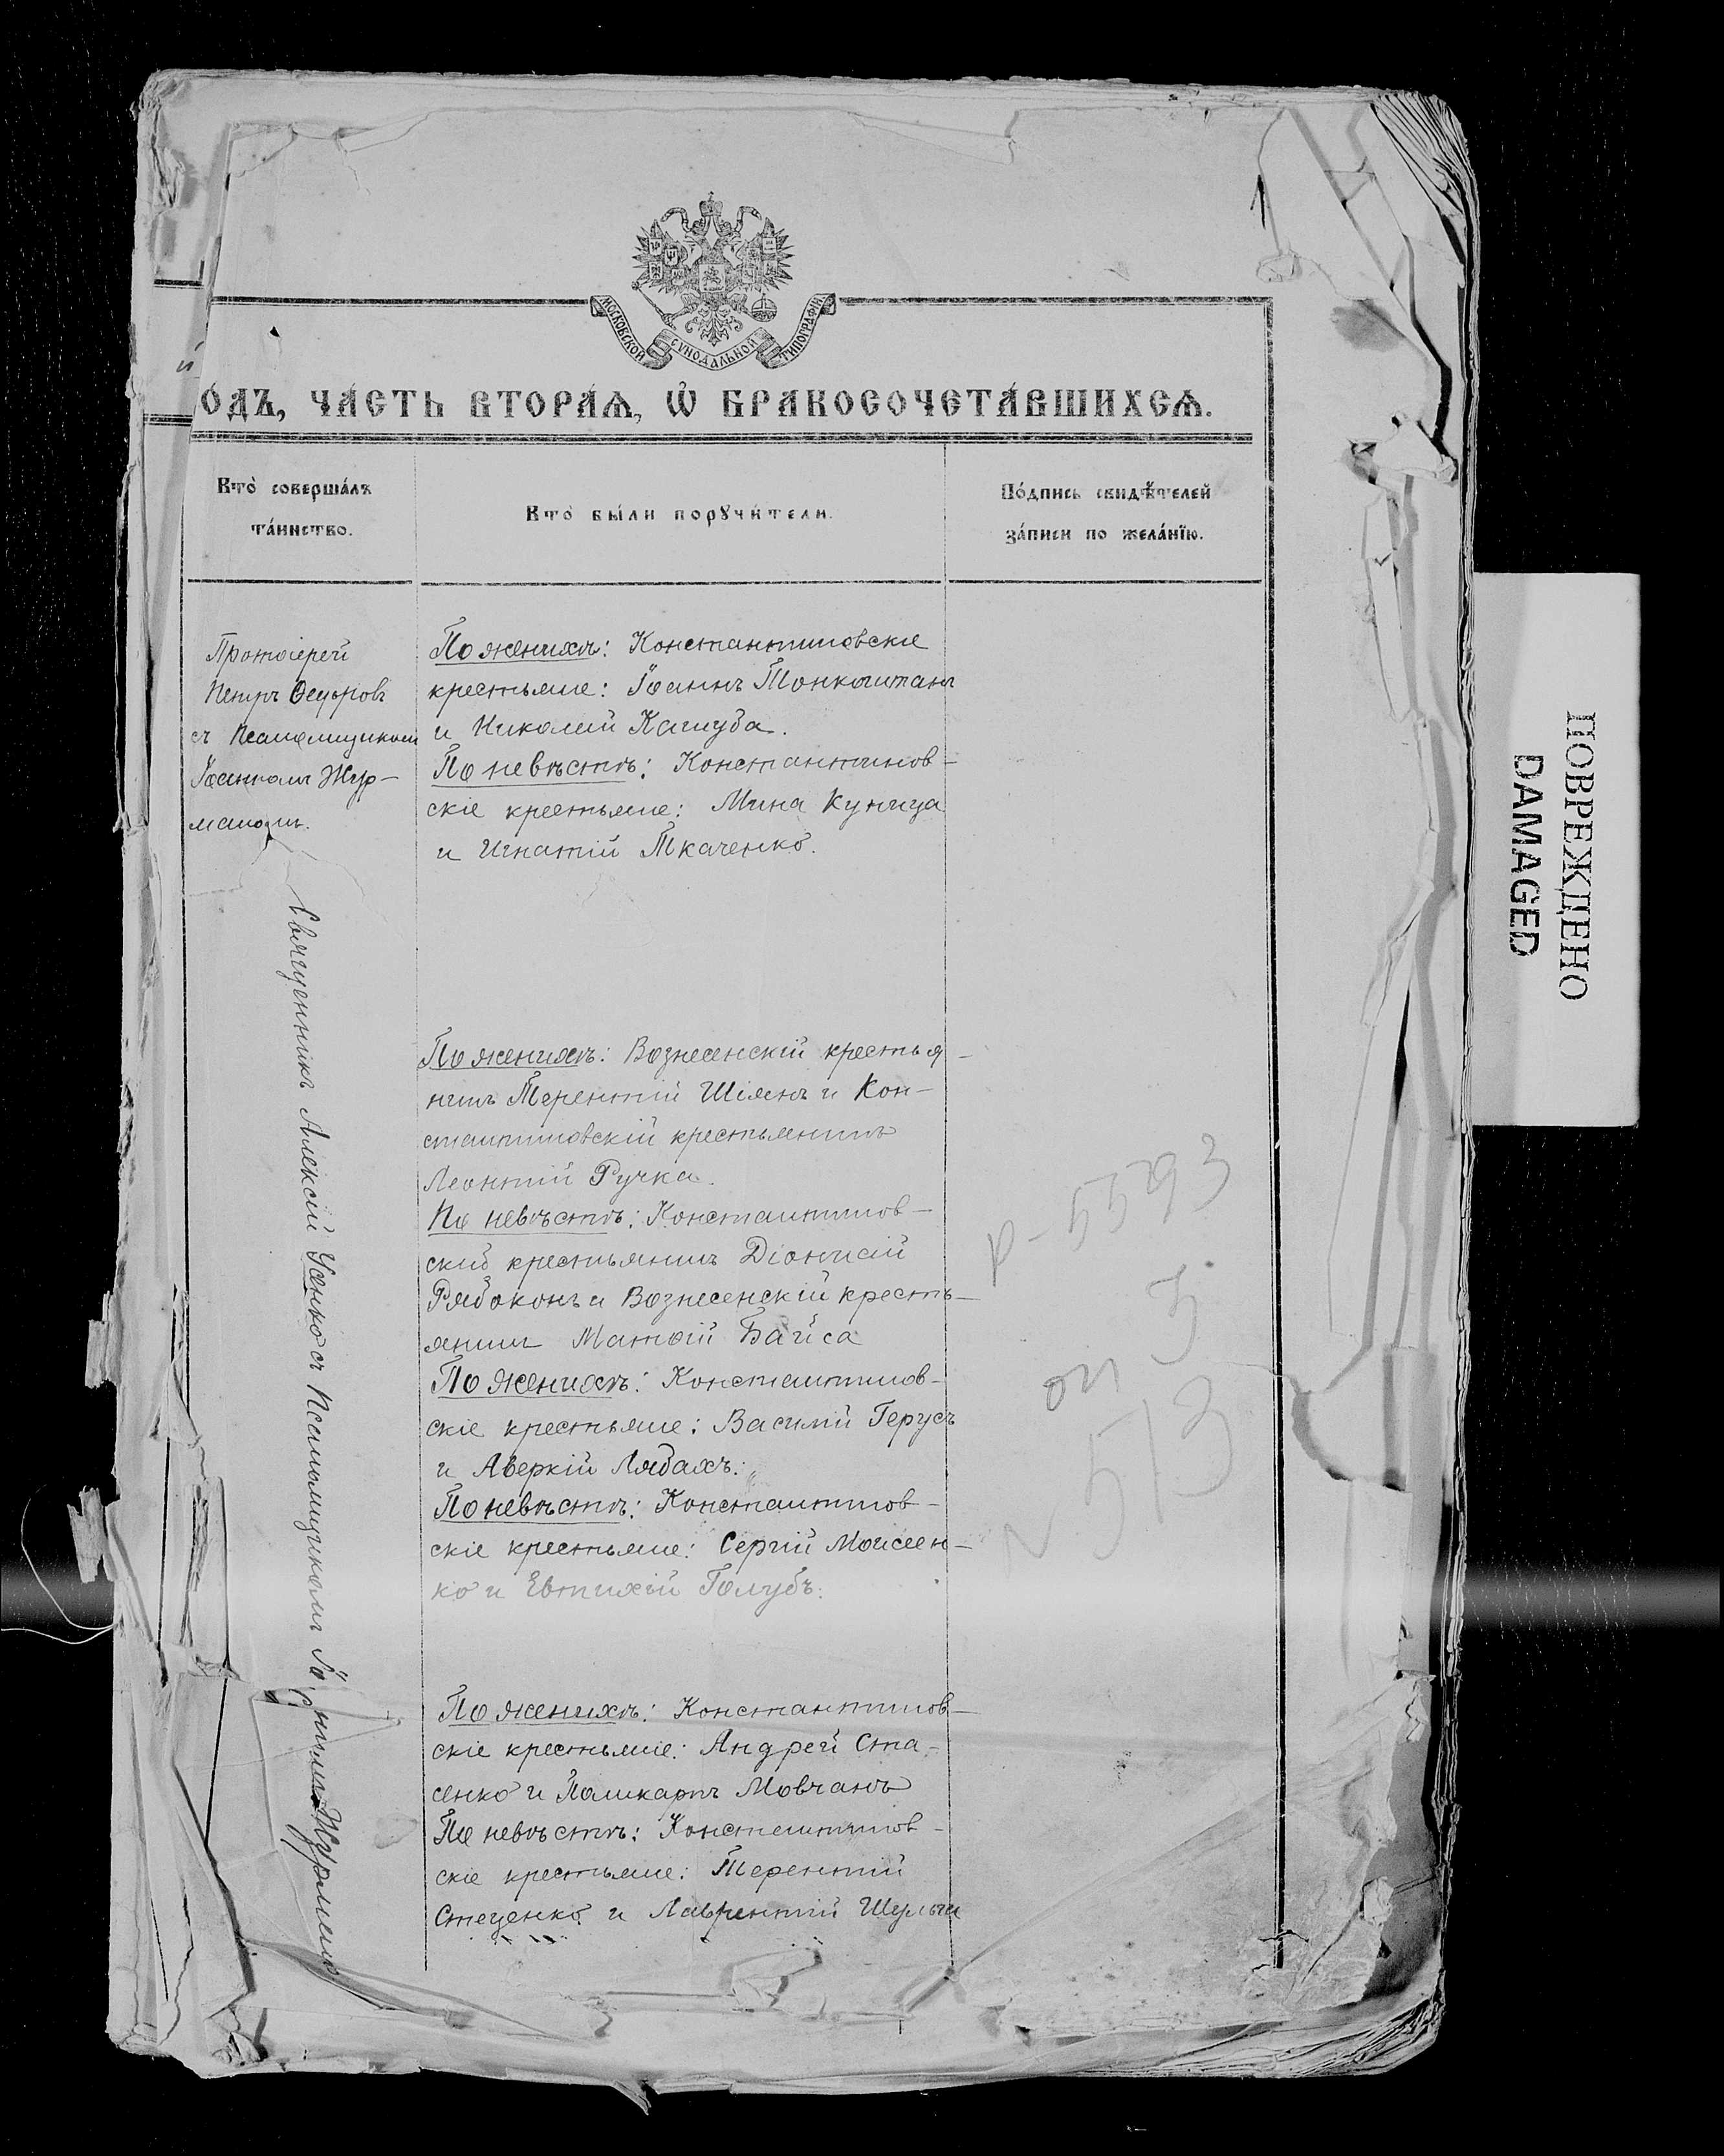 МОСКОВСКОЙ СѴНОДАЛЬНОЙ ТИПОГРАФІИ
й
ОДЪ, ЧА́СТЬ ВТОРА́Ѧ, Ѡ҆ БРАКОСОЧЕТА́ВШИХСѦ.
Кто̀ соверша́лъ
та́инство.
Кто̀ бы́ли порꙋчи́тели.
По́дпись свидѣ́телей
за́писи по жела́нїю.
Протоіерей
Петръ Ѳедоровъ
съ Псаломщикомъ
Іоанномъ Жур-
маномъ.
По женихѣ: Константиновскіе
крестьяне: Іоаннъ
и Николай Кашуба.
По невѣстѣ: Константинов-
скіе крестьяне: Мина Куница
и Игнатій Ткаченко.
Священникъ Алексій Усенко съ Псаломщикомъ
По женихѣ: Вознесенскій крестья-
нинъ Терентій Шіянъ и Кон-
стантиновскій крестьянинъ
Леонтій Ручка.
По невѣстѣ: Константинов-
скій крестьянинъ Діонисій
Рябоконь и Вознесенскій кресть-
янинъ Матѳій Байса
По женихѣ: Константинов-
скіе крестьяне: Василій Герусъ
и Аверкій Лябахъ.
По невѣстѣ: Константинов-
скіе крестьяне: Сергій Моисеен-
ко и Евтихій Голубъ.
По женихѣ: Константинов-
скіе крестьяне: Андрей Ста-
сенко и Поликарпъ Мовчанъ
По невѣстѣ: Константинов-
скіе крестьяне: Терентій
Стеценко и Лаврентій
р-5593
оп 3
№ 513
ПОВРЕЖДЕНО
DAMAGED